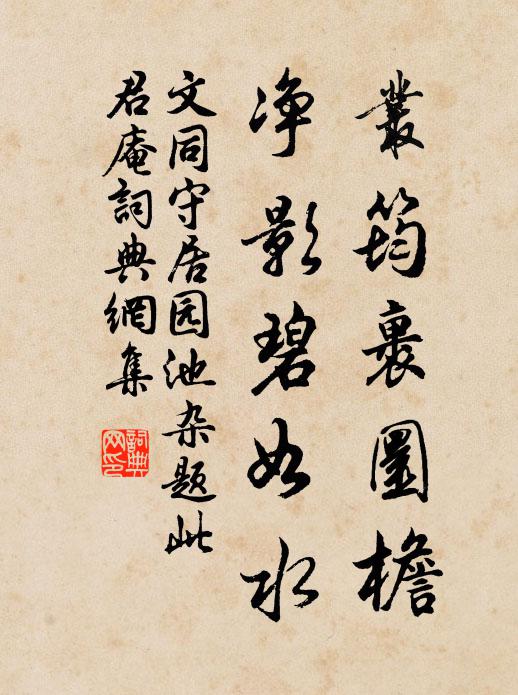 叢筠裹圓檐
净影碧如水
文同守居园池杂题此
君庵詞典網集
詞典网印